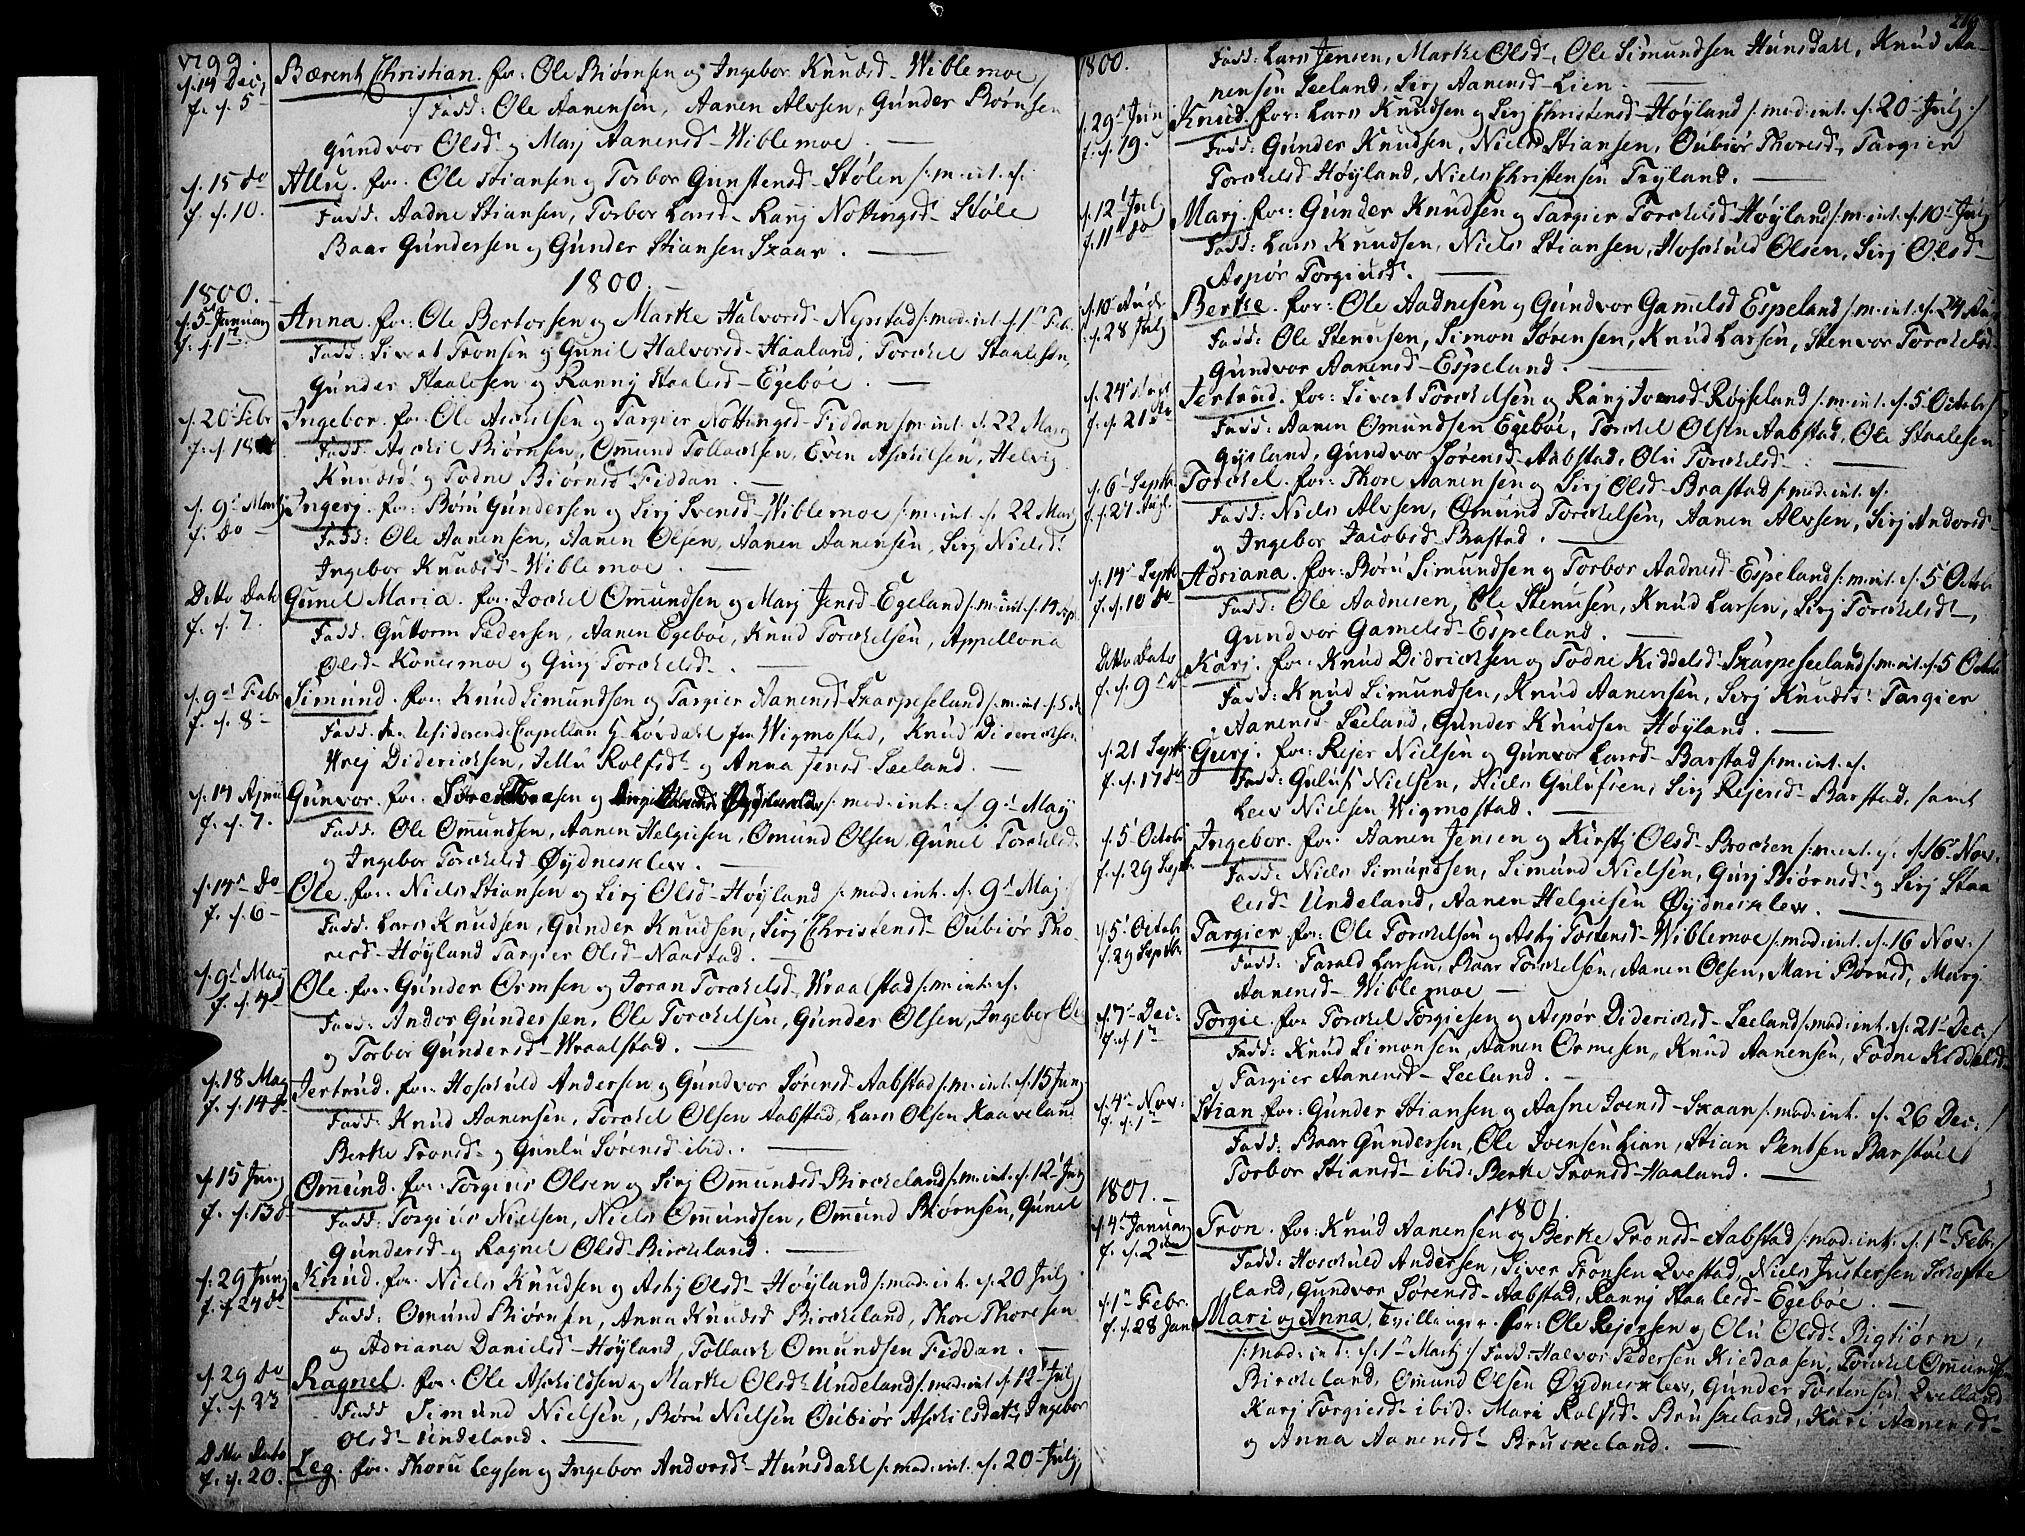 1799.
d. 14 Dec.
f. d. 5
Bærent Christian. for: Ole Biørnsen og Ingebor Knudsd. Wiblemoe
/ Fadd: Ole Aanensen, Aanen Alvsen, Gunder Børusen
Gundvor Olsd. og Marj Aanensd. Wiblemoe.
d. 15 do
f. d. 10.
Allu. for: Ole Stiansen og Torbor Gunstensd. Stølen /: m. int. d.
Fadd: Aadne Stiansen, Torbor Larsd. Ranj Nottingsd. Støle
Baar Gundersen og Gunder Stiansen Skaar.
1800.
1800.
d. 5 January
f. d. 1
Anna. for: Ole Bertorsen og Marke Halvorsd. Nypstad /: mod: int. d. 1 Feb.
Fadd: Sivert Tronsen og Gunil Halvorsd. Haaland, Torckel Staalesen,
Gunder Staalesen og Rannj Staalesd. Egebøe.
d. 20 Febr
f. d. 18
Ingebor. for: Ole Asckilsen og Targier Nottingsd. Fiddan /: m: int. d. 22 Marj
Fadd: Asckil Biørnsen, Omund Tollacksen, Even Asckilsen, Helvig
Knudsd. og Todne Biørnsd. Fiddan.
d. 9 Martj
f. do
Ingerj. for: Børu Gundersen og Sirj Svensd. Wiblemoe /: m: int. d. 22 Marj
Fadd: Ole Aanensen, Aanen Olsen, Aanen Aanensen, Sirj Nielsd.
Ingebor Knudsd. Wiblemoe.
Ditto Dato
f. d. 7.
Gunel Maria. for: Jockel Omundsen og Marj Jensd. Egeland /: m: int. d. 14
Fadd: Guttorm Pedersen, Aanen Egebøe, Knud Torckelsen, Appellona
Olsd. Konesmoe og Gurj Torckelsd.
d. 9 Febr
f. d. 8
Simund. for: Knud Simundsen og Targier Aanensd. Skarpeseland /: m: int. d. 5
Fadd: Residerende Capellan Hr Løvdahl fra Wigmostad, Knud Didericksen
Wrej Didericksen, Jellu Rolfsd. og Anna Jensd. Seeland.
d. 14 April
f. d. 7.
Gunvor. for: Søren Toresen og /: mod: int: d. 9 Maj
Fadd: Ole Omundsen, Aanen Helgiesen, Omund Olsen, Gunil Torckelsd.
og Ingebor Torckelsd. Øydnesklev.
d. 14 do
f. d. 6
Ole. for: Niels Stiansen og Sirj Olsd. Høyland /: mod: int. d. 9 Maj
Fadd: Lars Knudsen, Gunder Knudsen, Sirj Christensd. Oubiør Tho-
resd. Høyland Targier Olsd. Naastad.
d. 9 Maj
f. d. 4
Ole. for: Gunder Ormsen og Joran Torckelsd. Wraalstad /: m: int. d.
Fadd: Andor Gundersen, Ole Torckelsen, Gunder Olsen, Ingebor Ols
og Torbor Gundersd. Wraalstad.
d. 18 Maj
f. d. 14 do
Jertrud. for: Hosckuld Andersen og Gundvor Sørensd. Aabstad /: m: int. d. 15 Junj
Fadd: Knud Aanensen, Torckel Olsen Aabstad, Lars Olsen Kaaveland
Berke Tronsd. og Gunlu Sørensd. ibid.
d. 15 Junj
f. d. 13 do
Omund. for: Torgius Olsen og Sirj Omundsd. Birckeland /: m: int. d. 12 Julj
Fadd: Torgius Nielsen, Niels Omundsen, Omund Biørnsen, Gunil
Gundersd. og Ragnel Olsd. Birckeland.
d. 29 Junj
f. d. 24 do
Knud. for: Niels Knudsen og Askj Olsd. Høyland /: mod: int. d. 20 Julj
Fadd: Omund Biørnsen, Anna Knudsd. Birckeland, Thore Thoresen
og Adriana Danielsd. Høyland, Tollack Omundsen Fiddan.
d. 29 do
f. d. 23
Ragnel. for: Ole Asckildsen og Marke Olsd. Undeland /: mod: int. d. 12 Julj
Fadd Simund Nielsen, Børu Nielsen Oubiør Asckilsdat., Ingebor
Olsd. Undeland.
Ditto Dato
f. d. 20.
Leg. for: Thoru Legsen og Ingebor Andorsd. Hunsdahl /: mod: int. d. 20 Julj
219
1800.
Fadd: Lars Jensen, Marke Olsd., Ole Simundsen Hunsdahl, Knud Aa-
nensen Seeland, Sirj Aanensd. Lien.
d. 29 Junj
f. d. 19.
Knud. for: Lars Knudsen og Sirj Christensd. Høyland /: mod: int. d. 20 Julj :/
Fadd: Gunder Knudsen, Niels Stiansen, Oubiør Thoresd., Targier
Torckelsd. Høyland, Niels Christensen Tryland.
d. 12 Julj
f. 11 do
Marj. for: Gunder Knudsen og Targier Torckelsd. Høyland /: m: int. d. 10 Julj
Fadd: Lars Knudsen, Niels Stiansen, Hosckuld Olsen, Sirj Olsd.
Aspør Torgiusd.
d. 10 Aug.
d. 28 Julj
Berke. for: Ole Aadnesen og Gundvor Gamelsd. Espeland /: m: int. d. 24 Au
Fadd: Ole Stenusen, Simon Sørensen, Knud Larsen, Stenvor Torckelsd.
Gundvor Aanensd. Espeland.
d. 24
f. d. 21 do
Jertrud. for: Sivert Torckelsen og Ranj Jvensd. Røyseland /: m: int. d. 5 Octobr /
Fadd: Aanen Omundsen Egebøe, Torckel Olsen Aabstad, Ole Staalesen
Gysland, Gundvor Sørensd. Aabstad, Olu Torckelsd.
d. 6 Septbr
f. d. 27 Aug.
Torckel. for: Thore Aanensen og Sirj Olsd. Brastad /: mod: int. d.
Fadd: Niels Alvsen, Omund Torckelsen, Aanen Alvsen, Sirj Andorsd.
og Ingebor Jacobsd. Brastad.
d. 14 Septbr
f. d. 10 do
Adriana. for: Børu Simundsen og Torbor Aadnesd. Espeland /: m: int. d. 5 Octob
Fadd: Ole Aadnesen, Ole Stenusen, Knud Larsen, Sirj Torckelsd.,
Gundvor Gamelsd. Espeland.
Ditto dato
f. d. 9 do
Karj. for: Knud Didricksen og Todne Kiddelsd. Skarpeseeland /: m: int. d. 5 Octob
Fadd: Knud Simundsen, Knud Aanensen, Sirj Knudsd. Targier
Aanensd. Seeland, Gunder Knudsen Høyland.
d. 21 Septbr
f. d. 17 do
Gurj. for: Rejer Nielsen og Gunvor Larsd. Barstad /: m: int. d.
Fadd: Gulus Nielsen, Niels Gulufsen, Sirj Rejersd. Barstad, samt
Leev Nielsen Wigmostad.
d. 5 Octobr
f. d. 29 Septbr
Ingebor. for: Aanen Jensen og Kirstj Olsd. Brocken /: m: int. d. 16 Nov.
Fadd: Niels Simundsen, Simund Nielsen, Gurj Biørnsd. og Sirj Staa
lesd. Undeland, Aanen Helgiesen Øydnesklev.
d. 5 Octobr
f. 29 Septbr
Targier. for: Ole Torckelsen og Askj Tostensd. Wiblemoe /: mod: int. d. 16 Nov. /
Fadd: Tarald Larsen, Baar Torckelsen, Aanen Olsen, Mari Børusd., Marj
Aanensd. Wiblemoe
d. 7 Dec.
f. d. 1
Torgie. for Torckel Torgiesen og Aspør Didericksd. Seeland /: mod: int. d. 21 Dec. /
Fadd: Knud Simonsen, Aanen Ormesen, Knud Aanensen, Todne Kiddelsd.
og Targier Aanensd. Seeland.
d. 4 Nov.
f. d. 1
Stian. for: Gunder Stiansen og Aasne Jvensd. Skaar /: mod: int. d. 26 Dec. /
Fadd: Baar Gundersen, Ole Jvensen Lian, Stian Bentsen Barstøel
Torbor Stiansd. ibid: Berke Tronsd. Haaland.
1801.
1801.
d. 4 Januar
f. d. 2
Tron. for: Knud Aanensen og Berke Tronsd. Aabstad /: mod: int. d. 1 Febr. /
Fadd: Hosckuld Andersen, Siver Tronsen Qvestad, Niels Justersen Schofte
land, Gundvor Sørensd. Aabstad, Rannj Staalesd. Egebøe.
d. 1 Febr.
f. d. 28 Jan
Mari og Anna, Tvillinger. for: Ole Rejersen og Olu Olsd. Bigtiørn,
/: mod: int: d. 1 Martj :/ Fadd: Halvor Pedersen Kiedaasen, Torckel Omunds
Birckeland, Omund Olsen Øydnesklev, Gunder Tostensen Qvelland
Karj Torgiesd. ibid: Mari Rolfsd. Bruskeland, Kari Aanensd.
og Anna Aanensd. Bruskeland.